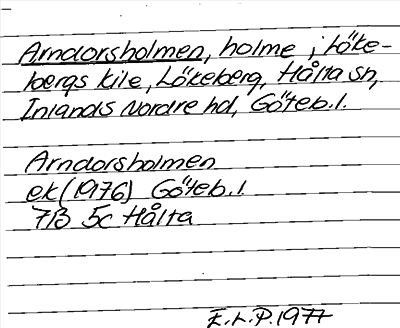 Arndorsholmen, holme i Löke-
bergs kile, Lökeberg, Hålta sn,
Inlands Nordre hd, Göteb.l.
Arndorsholmen
ek (1976) Göteb.l.
7B 5c Hålta
E.L.P. 1977